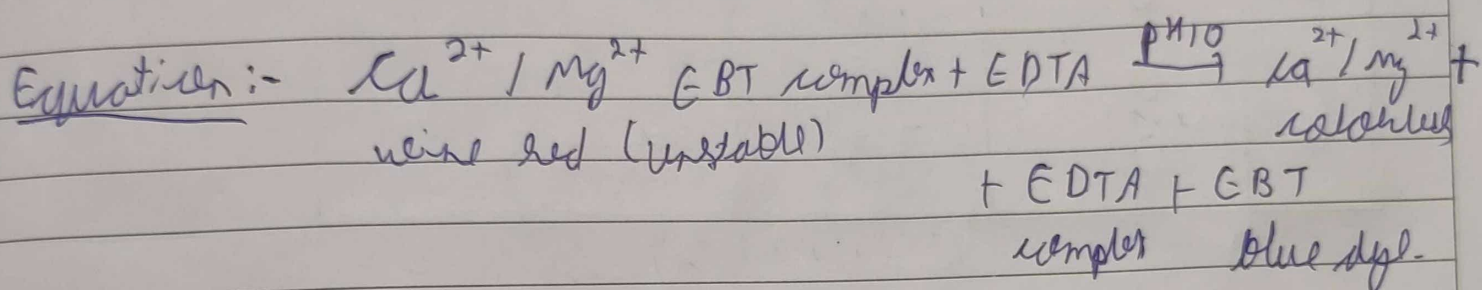 Equation :- Ca2+ / Mg2+ EBT complex + EDTA pH10 → Ca2+ / Mg2+ +
wine red (unstable) colorless
+ EDTA + EBT
complex blue dye.